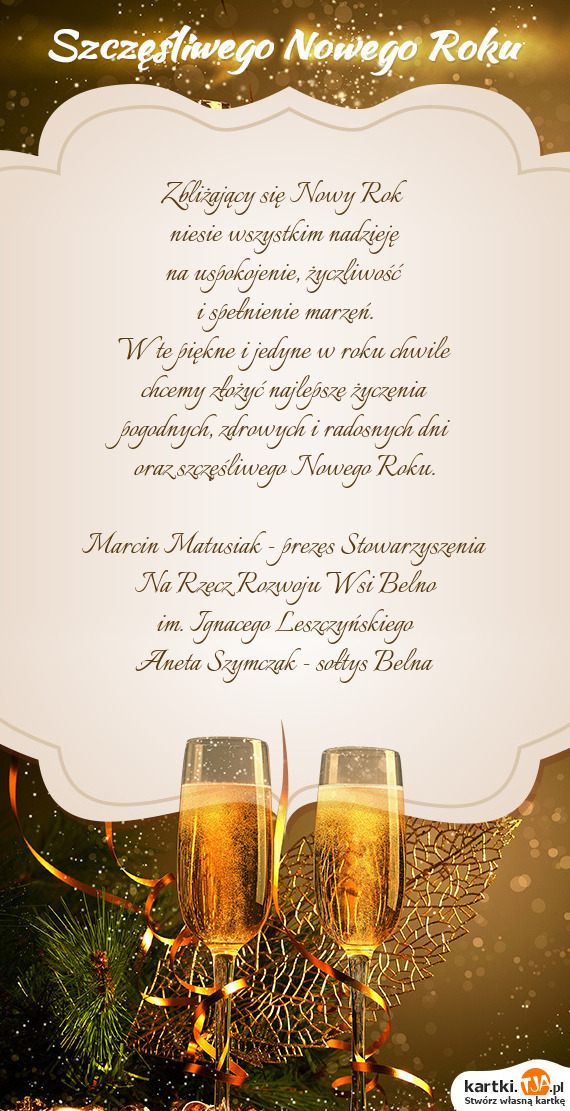 Szczęśliwego Nowego Roku
Zbliżający się Nowy Rok
niesie wszystkim nadzieję
na uspokojenie, życzliwość
i spełnienie marzeń.
W te piękne i jedyne w roku chwile
chcemy złożyć najlepsze życzenia
pogodnych, zdrowych i radosnych dni
oraz szczęśliwego Nowego Roku.
Marcin Matusiak - prezes Stowarzyszenia
Na Rzecz Rozwoju Wsi Belno
im. Ignacego Leszczyńskiego
Aneta Szymczak - sołtys Belna
kartki.TJA.pl
Stwórz własną kartkę